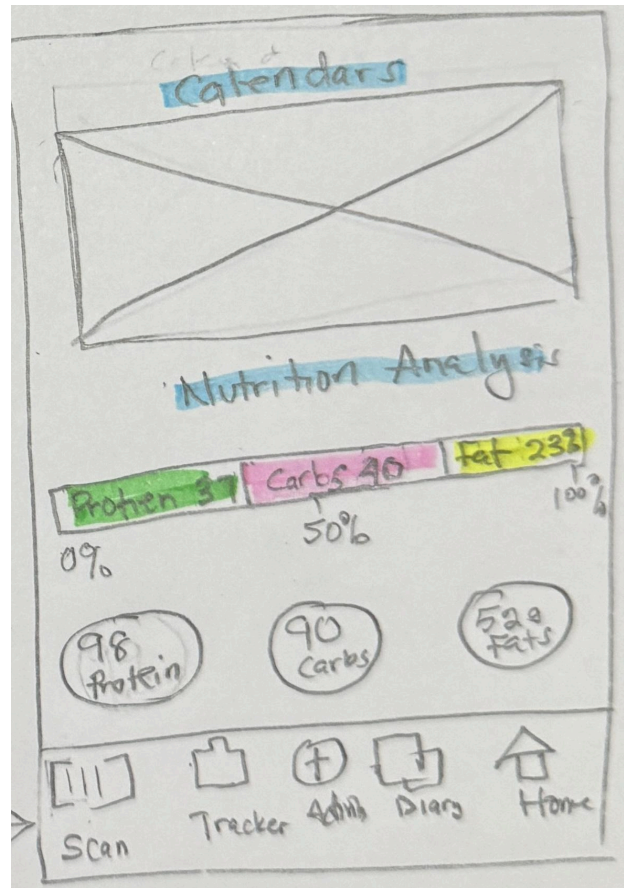 Calendars
Nutrition Analysis
Protien 37 Carbs 40 Fat 23%
0% 50% 100%
98 Protein
90 Carbs
52g Fats
Scan Tracker Diary Home